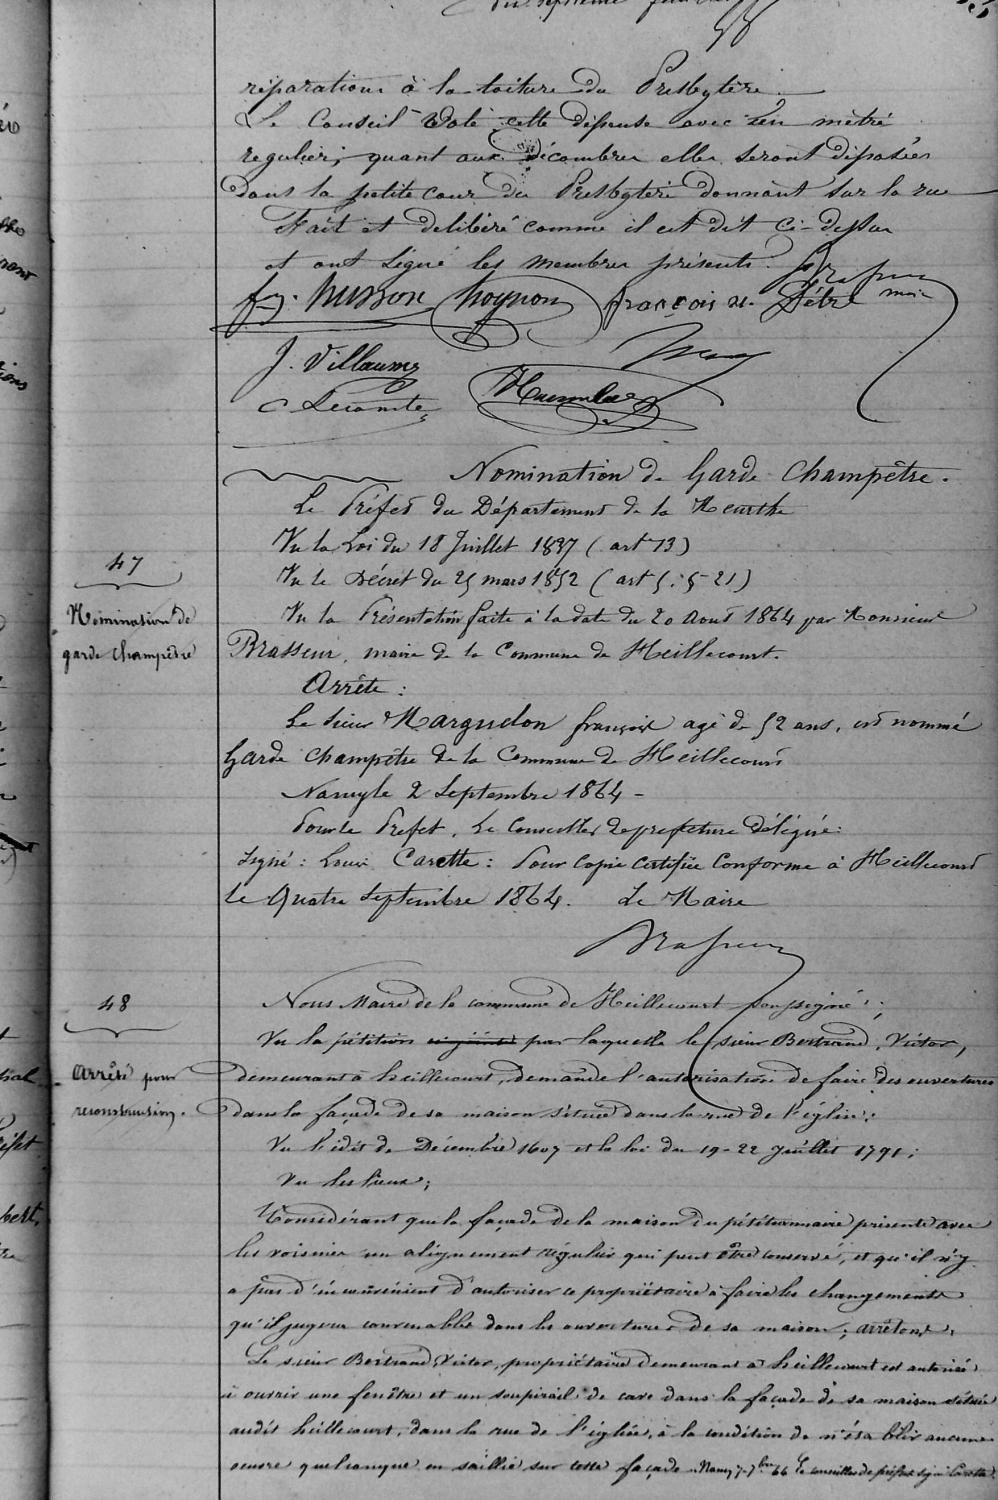 réparations à la toiture du Presbytère.
Le Conseil Vote cette dépense avec un métré
régulier; quant aux décombres elles seront déposées
dans la petite cour du Presbytère donnant sur la rue
Fait et délibéré comme il est dit Ci-dessus
et ont signé les membres présents.
fs. husson hognon françois n. Brasseur
J. Villaume maire
C Lecomte
Nomination de Garde Champêtre.
Le Préfet du Département de la Meurthe
Vu la Loi du 18 Juillet 1837 (art 13)
Vu le Décret du 25 mars 1852 (art 5. § 21)
47
Nomination de
garde champêtre
Vu la Présentation faite à la date du 20 Aout 1864 par Monsieur
Brasseur, maire de la Commune de Heillecourt.
Arrête :
Le Sieur Marguelon françois agé de 52 ans, est nommé
Garde champêtre de la Commune de Heillecourt
Nancy le 2 Septembre 1864 -
Pour le Préfet, Le Conseiller de prefecture Délégué:
Signé : Louis Carette : Pour copie certifiée Conforme à Heillecourt
le Quatre Septembre 1864. Le Maire
Brasseur
48
Arrêté pour
reconstruction.
Nous Maire de la commune de Heillecourt soussigné ;
Vu la pétition par laquelle le sieur Bertrand, Victor,
demeurant à heillecourt, demande l'autorisation de faire des ouvertures
dans la façade de sa maison située dans la rue de l'église;
Vu l'édit de Décembre 1607 et la loi du 19-22 Juillet 1791;
Vu les lieux;
Considérant que la façade de la maison du pétitionnaire présente avec
les voisines un alignement régulier qui peut être conservé, et qu'il n'y
a pas d'inconvénient d'autoriser ce propriétaire à faire les changements
qu'il jugera convenables dans les ouvertures de sa maison; arrêtons,
Le sieur Bertrand, Victor, propriétaire demeurant à heillecourt est autorisé
à ouvrir une fenêtre et un soupirail de cave dans la façade de sa maison située
audit heillecourt, dans la rue de l'église, à la condition de n'établir aucune
oeuvre quelconque en saillie sur cette façade. Nancy 7 7bre 66 Le conseiller de préfect signé Carette